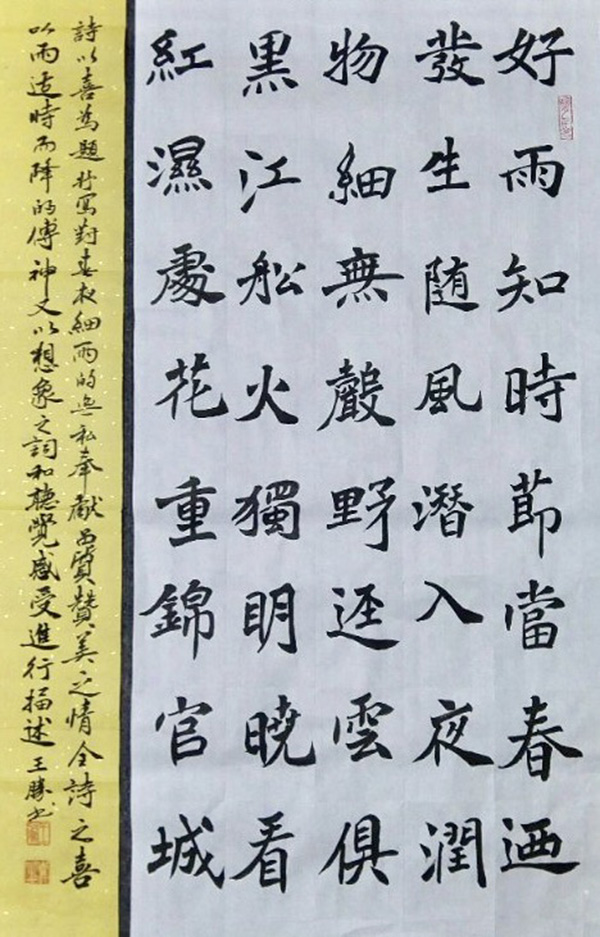 好雨知時節當春迺
發生随風潛入夜潤
物細無聲野逕雲俱
黑江船火獨明曉看
紅濕處花重錦官城
詩以喜為題抒寫對春夜細雨的無私奉献品質贊美之情全詩之喜
以雨适時而降的傳神又以想象之詞和聽覺感受進行描述 王勝书